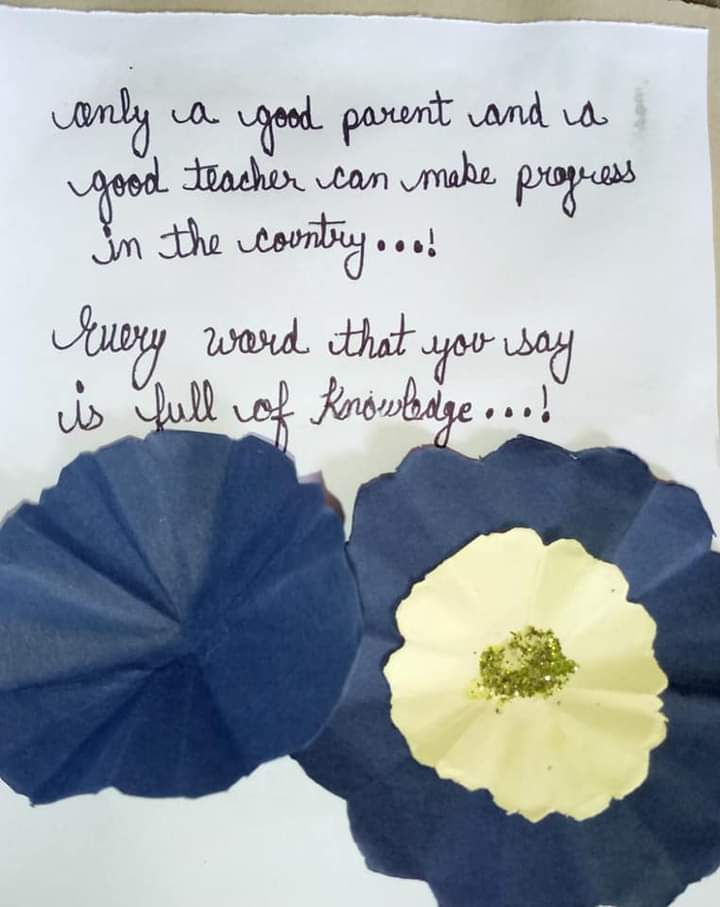 only a good parent and a
good teacher can make progress
in the country...!
Every word that you say
is full of knowledge...!